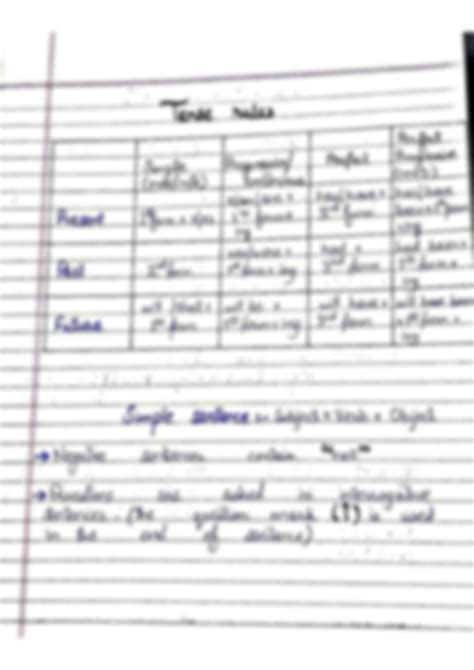 Tense rules
Simple Progressive/ Perfect Perfect
Continuous Progressive
Present 1st form + s/es is/am/are + has/have + has/have
1st form + 3rd form been + 1st form
ing + ing
Past 2nd form was/were + had + had been +
1st form + ing 3rd form 1st form +
ing
Future will/shall + will be + will have + will have been
1st form 1st form + ing 3rd form + 1st form +
ing
Simple sentence :- Subject + Verb + Object
→ Negative sentences contain "not"
→ Questions are asked in interrogative
sentences. (the question mark (?) is used
in the end of sentence)